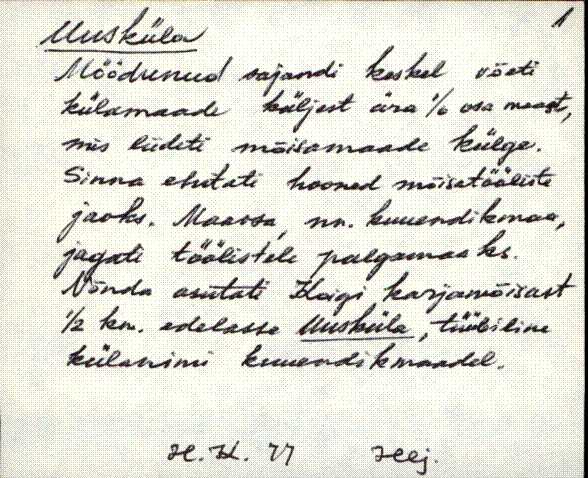 1
Uusküla
Möödunud sajandi keskel võeti
külamaade küljest ära 1/6 osa maast,
mis liideti mõisamaade külge.
Sinna ehitati hooned mõisatööliste
jaoks. Maaosa, nn. kuuendikmaa,
jagati töölistele palgamaaks.
Nõnda asutati Koigi karjamõisast
1/2 km. edelasse Uusküla, tüübiline
külanimi kuuendikmaadel.
77